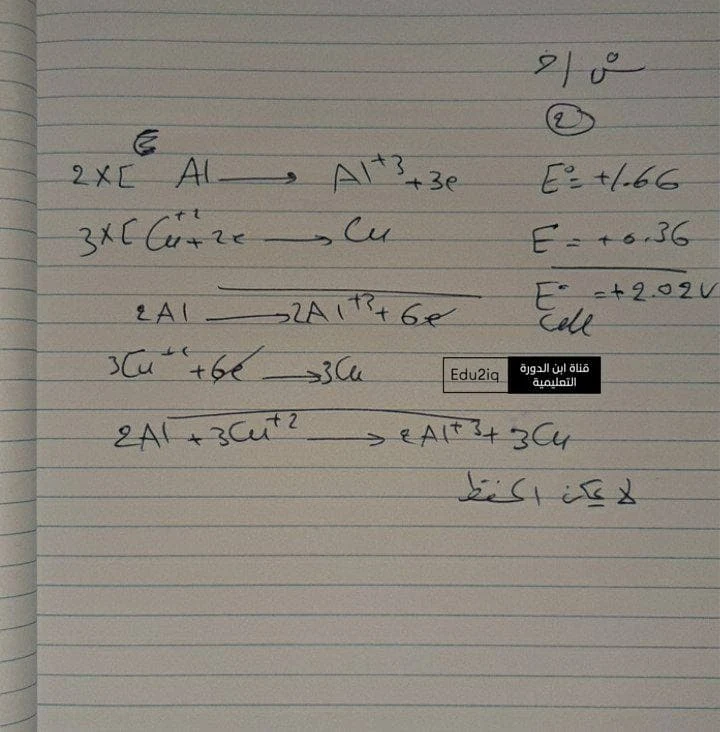 س / ف
②
2×[ Al → Al⁺³ + 3e E° = +1.66
3×[ Cu⁺² + 2e → Cu E = +0.36
E° cell = +2.02V
2Al → 2Al⁺³ + 6e
3Cu⁺² + 6e → 3Cu
Edu2iq
قناة ابن الدورة
التعليمية
2Al + 3Cu⁺² → 2Al⁺³ + 3Cu
لا يمكن الحفظ